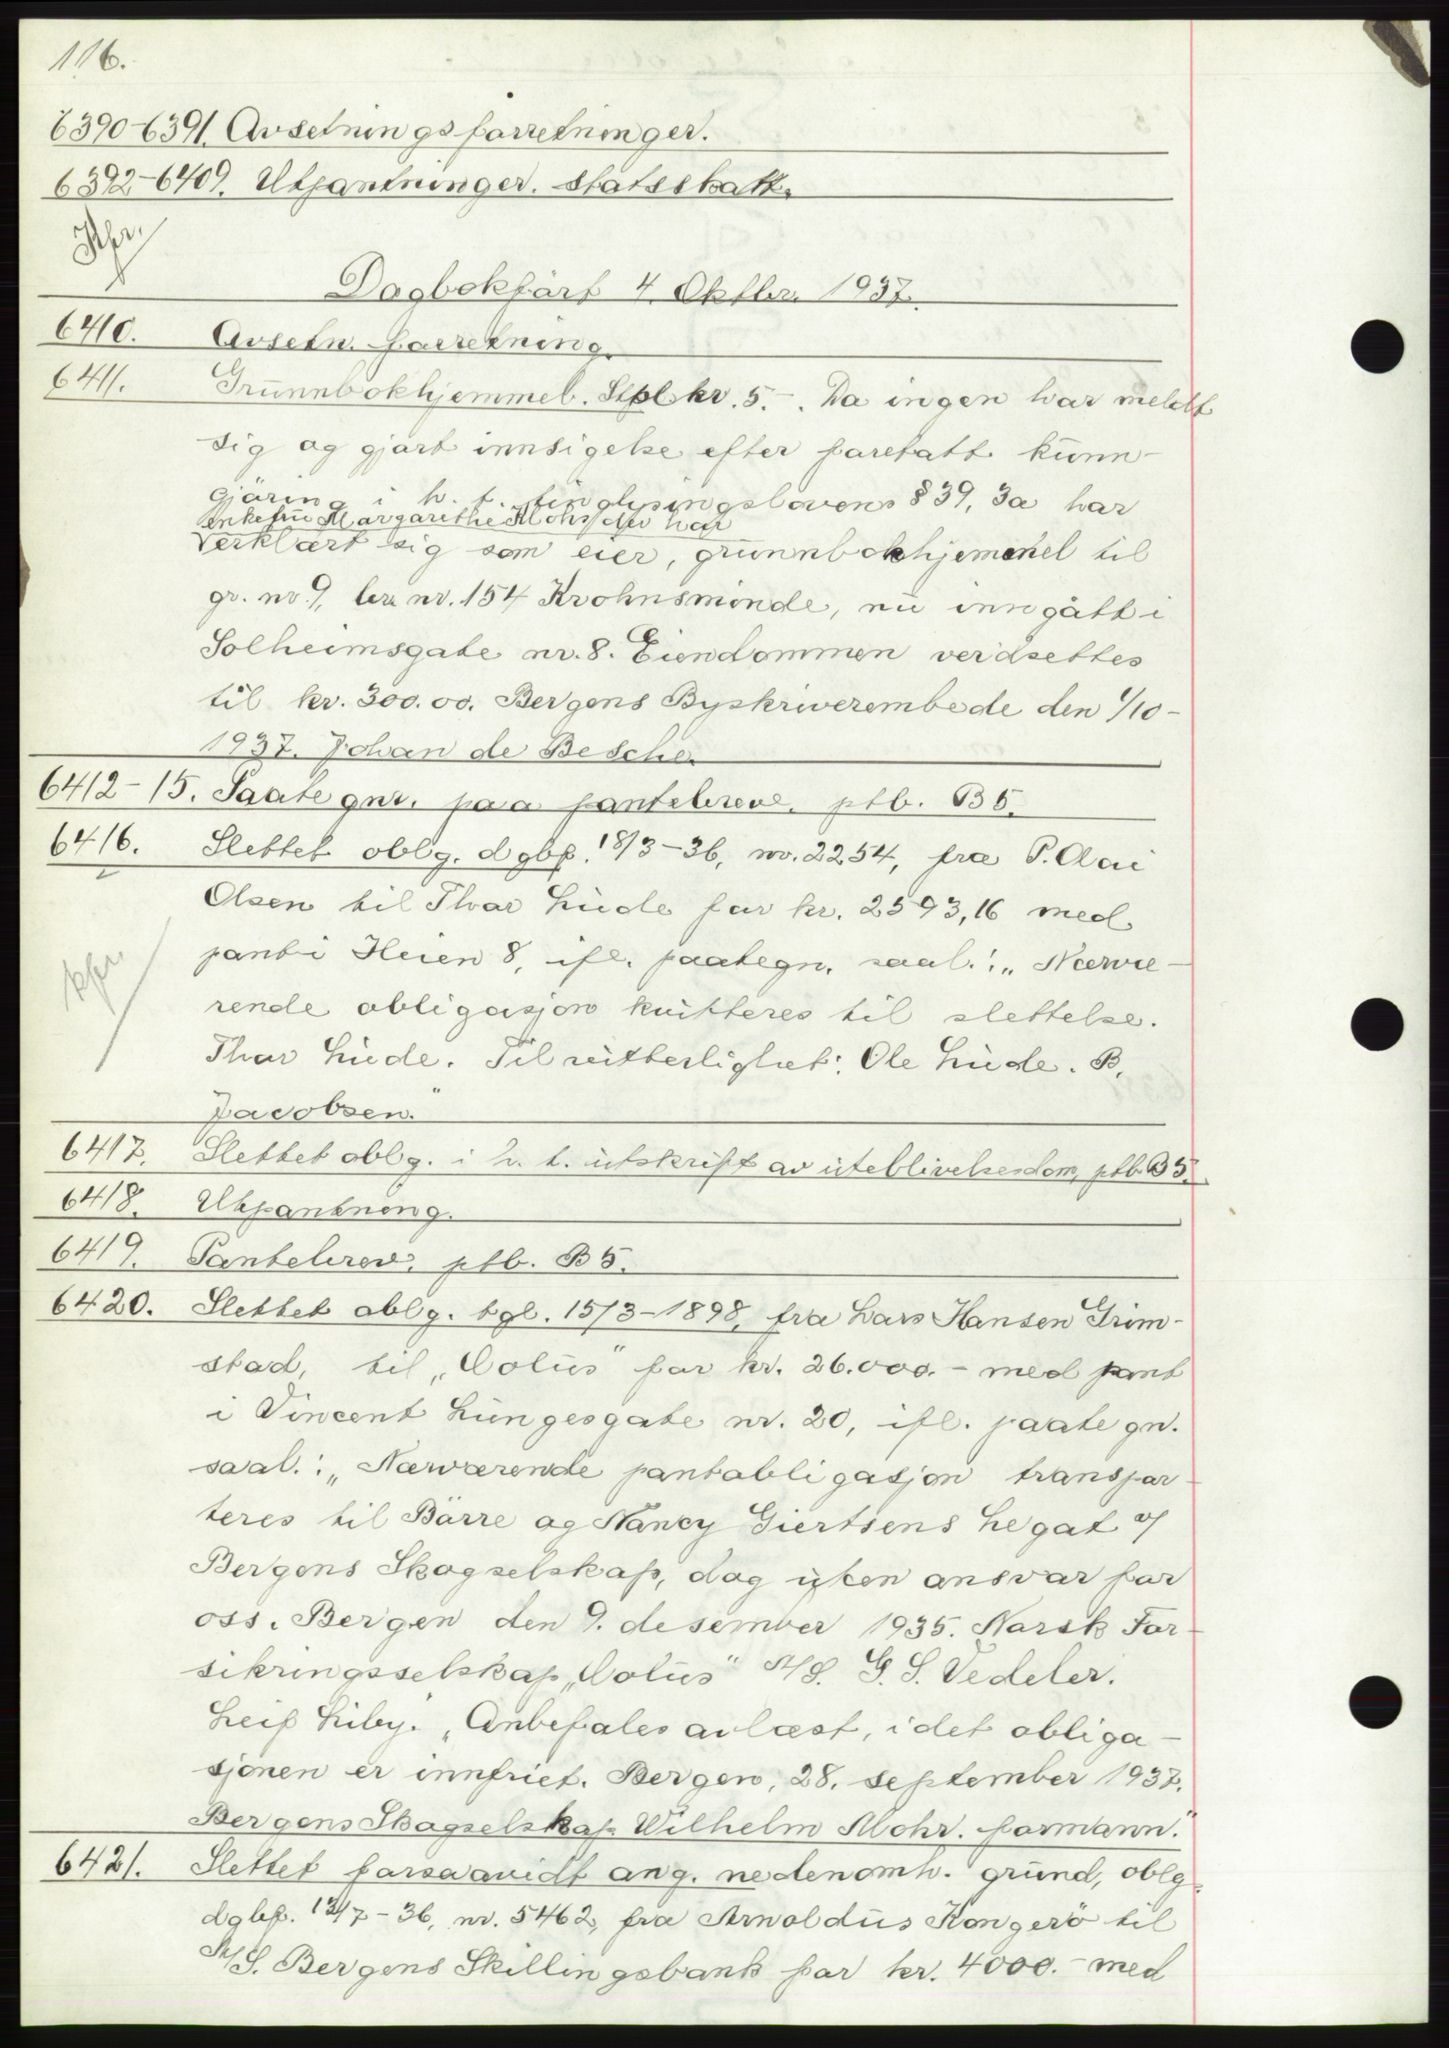 116.
6390-6391. Avsetningsforretninger.
6392-6409. Utpantninger. statsskatt.
Kfr.
Dagbokført 4. Oktbr. 1937.
6410. Avsetn. forretning.
6411. Grunnbokhjemmel. Stpl kr. 5.-. Da ingen har meldt
sig og gjort innsigelse efter foretatt kunn-
gjöring i h. t. tinglysingslovens § 39, 3a har
enkefru Margarethe Mohr der har
erklært sig som eier, grunnbokhjemmel til
gr. nr. 9, br. nr. 154 Krohnsminde, nu inngått i
Solheimsgate nr. 8. Eiendommen verdsettes
til kr. 300.00. Bergens Byskriverembede den 1/10-
1937. Johan de Besche.
6412-15. Paategnr. paa pantebreve. ptb. B 5.
6416. Slettet oblg. dgbf. 18/3-36, nr. 2254, fra P.
Olsen til Thor Lüde for kr. 2593,16 med
pant i Heien 8, ifl. paategn. saal.: „Nærvæ-
rende obligasjon kvitteres til slettelse.
Thor Lüde. Til vitterlighet: Ole Lüde. B.
Jacobsen."
kfr.
6417. Slettet oblg. i h. t. utskrift av uteblivelsesdom, ptb. B5.
6418. Utpantning.
6419. Pantebrev, ptb. B 5.
6420. Slettet oblg. tgl. 15/3-1898, fra Lars Hansen Grim-
stad, til „Æolus" for kr. 26.000.- med pant
i Vincent Lungesgate nr. 20, ifl. paategn.
saal.: „Nærværende pantobligasjon transpor-
teres til Börre og Nancy Giertsens Legat v/
Bergens Skogselskap, dog uten ansvar for
oss. Bergen den 9. desember 1935. Norsk For-
sikringsselskap „Æolus" A/S. G. S. Vedeler.
Leif Liby." „Anbefales avlæst, idet obliga-
sjonen er innfriet. Bergen, 28. september 1937.
Bergens Skogselskap Wilhelm Mohr. formann."
6421. Slettet forsaavidt ang. nedenomh. grund, oblg.
dgbf. 13/7-36, nr. 5462, fra Arnoldus Kongerö til
A/S. Bergens Skillingsbank for kr. 4000.- med